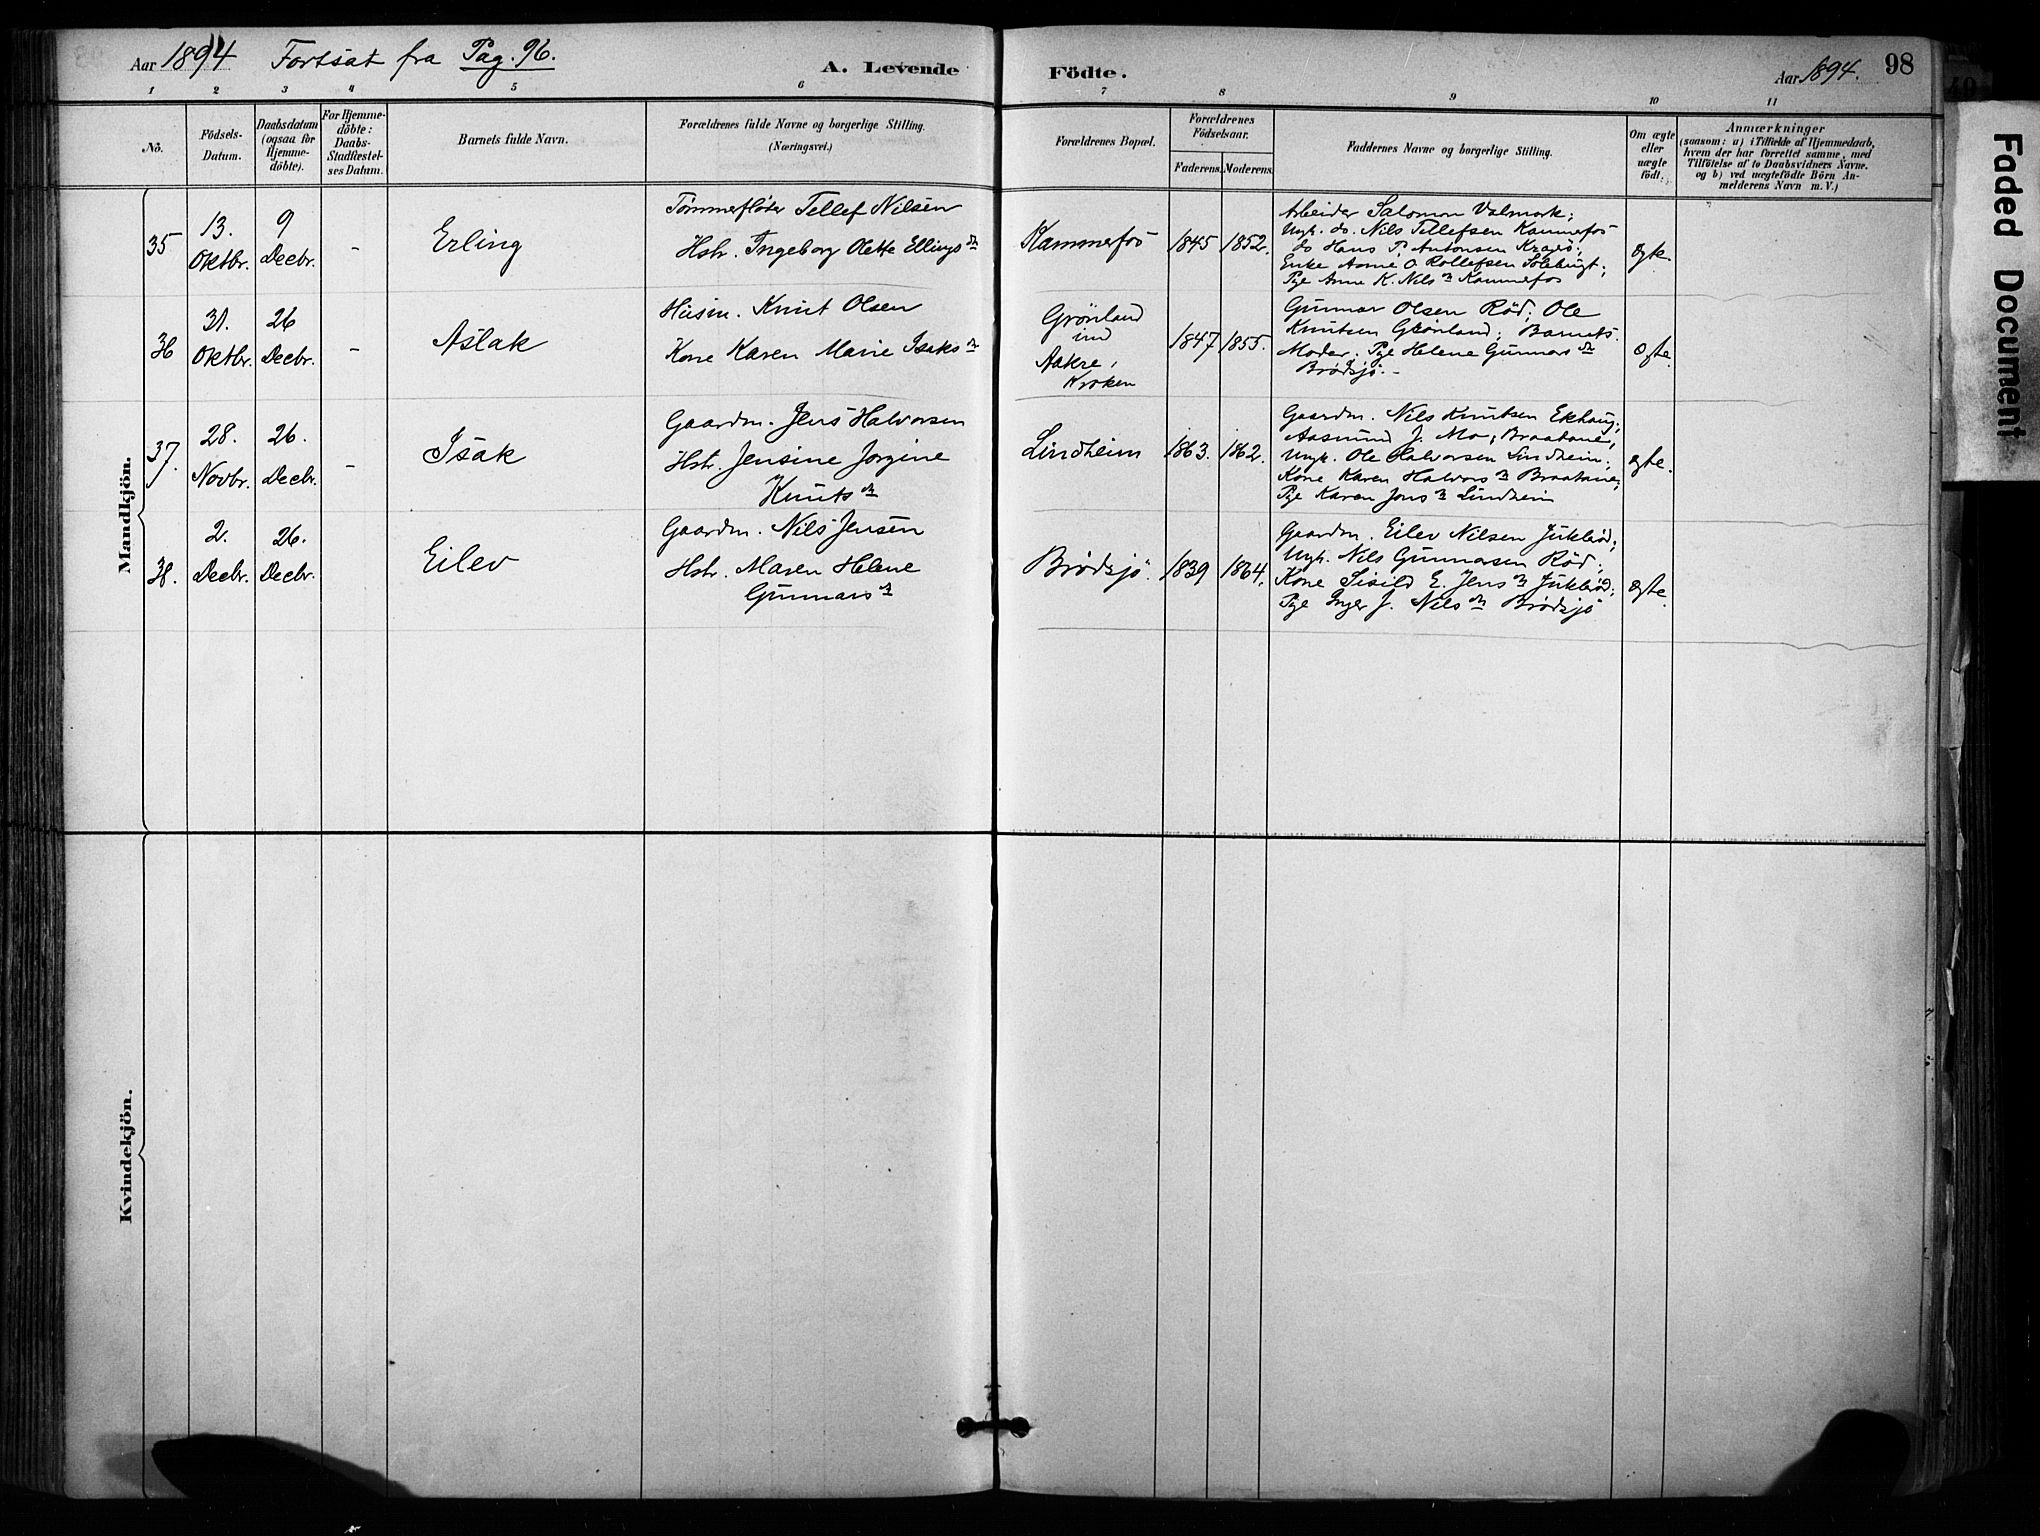 Aar 1894 Fortsat fra Pag. 96.
A. Levende Födte.
Aar 1894. 98
1 2 3 4 5 6 7 8 9 10 11
No.
Födsels-Datum.
Daabsdatum (ogsaa for Hjemme-döbte).
For Hjemme-döbte: Daabs-Stadfæstel-ses Datum.
Barnets fulde Navn.
Forældrenes fulde Navne og borgerlige Stilling.
(Næringsvei.)
Forældrenes Bopæl.
Forældrenes Födselsaar.
Faderens. Moderens.
Faddernes Navne og borgerlige Stilling.
Om ægte eller uægte født.
Anmærkninger
(saasom: a) i Tilfælde af Hjemmedaab,
hvem der har forrettet samme, med
Tilföielse af to Daabsvidners Navne.
og b) ved uægtefödte Börn An-
melderens Navn m. V.)
Mandkjön.
35
13. Oktbr.
9 Decbr.
-
Erling
Tømmerfløter Tellef Nilsen
Hstr. Ingeborg Olette Ellingsdtr
Kammerfos
1845 1852.
Arbeider Salomon Valmork;
Ungk. do. Nils Tellefsen Kammerfos
do Hans P. Antonsen Kragerö;
Enke Anne O. Rollefsen
Pige Anne K. Nilsdtr Kammerfos
ægte.
36
31. Oktbr.
26 Decbr.
-
Aslak
Husm. Knut Olsen
Kone Karen Marie Isaksdtr
Grönland
und
Aakre,
Kroken
1847 1855.
Gunnar Olsen Röd; Ole
Knutsen Grönland; Barnets
Moder; Pige Helene Gunnarsdtr
Brödsjö.-
ægte.
37.
28. Novbr.
26. Decbr.
-
Isak
Gaardm. Jens Halvorsen
Hstr. Jensine Jorgine
Knutsdtr
Lindheim
1863. 1862.
Gaardm. Nils Knutsen Ekhaug;
Aasmund J. Mo, Braatane;
Ungk. Ole Halvorsen Lindheim;
Kone Karen Halvorsdtr Braatane;
Pige Karen Jensdtr Lindheim
ægte.
38.
2. Decbr.
26. Decbr.
Eilev
Gaardm. Nils Jensen
Hstr. Maren Helene
Gunnarsdtr
Brödsjö.
1839 1864.
Gaardm. Eilev Nilsen Jukebö;
Ungk. Nils Gunnarsen Röd;
Kone Sisild E. Jensdtr Jukebö;
Pige Inger J. Nilsdtr Brödsjö
ægte.
Kvindekjön.
Faded Document